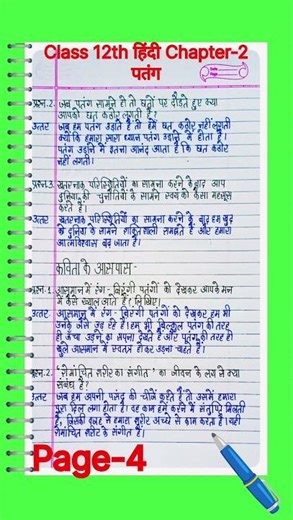 Class 12th हिंदी Chapter-2
पतंग
प्रश्न.2. जब पतंग सामने हो तो छतों पर दौड़ते हुए क्या
आपको छत कठोर लगती है?
उत्तर जब हम पतंग उड़ाते हैं तो हमें छत कठोर नहीं लगती
क्योंकि हमारा सारा ध्यान पतंग उड़ाने में होता है।
पतंग उड़ाने में इतना आनंद आता है कि छत कठोर
नहीं लगती।
प्रश्न.3. खतरनाक परिस्थितियों का सामना करने के बाद आप
दुनिया की चुनौतियों के सामने स्वयं को कैसा महसूस
करते हैं।
उत्तर खतरनाक परिस्थितियों का सामना करने के बाद हम खुद
को दुनिया के सामने शक्तिशाली समझते हैं और हमारा
आत्मविश्वास बढ़ जाता है।
कविता के आसपास-
प्रश्न-1. आसमान में रंग-बिरंगी पतंगों को देखकर आपके मन
में कैसे ख्याल आते हैं। लिखिए।
उत्तर आसमान में रंग-बिरंगी पतंगों को देखकर हम भी
उनके जैसे उड़ रहे हैं। हम भी बिल्कुल पतंग की तरह
ही ऊँचा उड़ने का सपना देखते हैं और पतंग की तरह ही
खुले आसमान में स्वतंत्र होकर उड़ना चाहते हैं।
प्रश्न.2. "रोमांचित शरीर का संगीत" का जीवन के लय से क्या
संबंध है?
उत्तर जब हम अपनी पसंद की चीजें करते हैं तो उसमें हमारा
पूरा दिल लगा होता है। वह काम हमें करने में संतुष्टि मिलती
है, जिसकी वजह से हमारा शरीर अच्छे से काम करता है। यही
रोमांचित शरीर के संगीत हैं।
Page-4